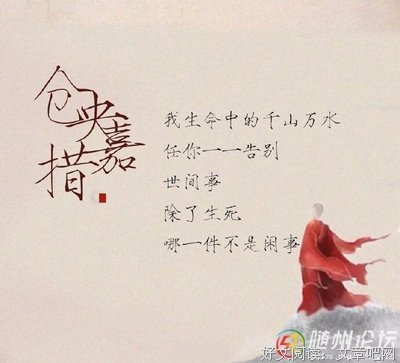 仓央嘉措
我生命中的千山万水
任你一一告别
世间事
除了生死
哪一件不是闲事
随州论坛
好文阅读 文章吧网